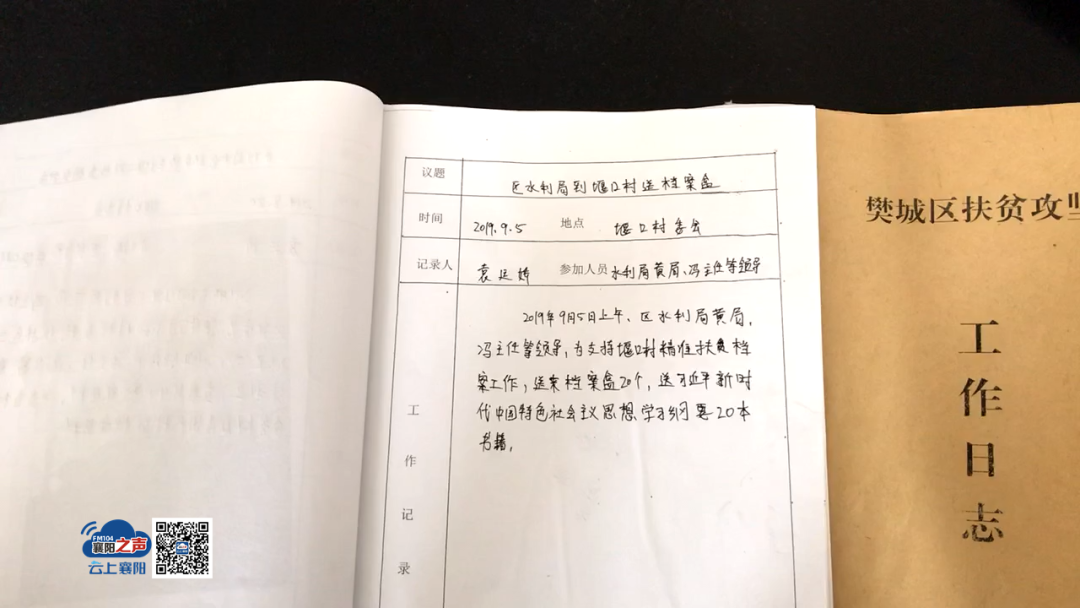 议题 区水利局到堰口村送档案盒
时间 2019.9.5 地点 堰口村委会
记录人 袁廷婷 参加人员 水利局黄局、冯主任等领导
2019年9月5日上午、区水利局黄局、
冯主任等领导，为支持堰口村精准扶贫档
案工作，送来档案盒20个，送习近平新时
代中国特色社会主义思想学习纲要20本
书籍，
工
作
记
录
樊城区扶贫攻坚
工
作
日
志
FM104
襄阳之声
云上襄阳